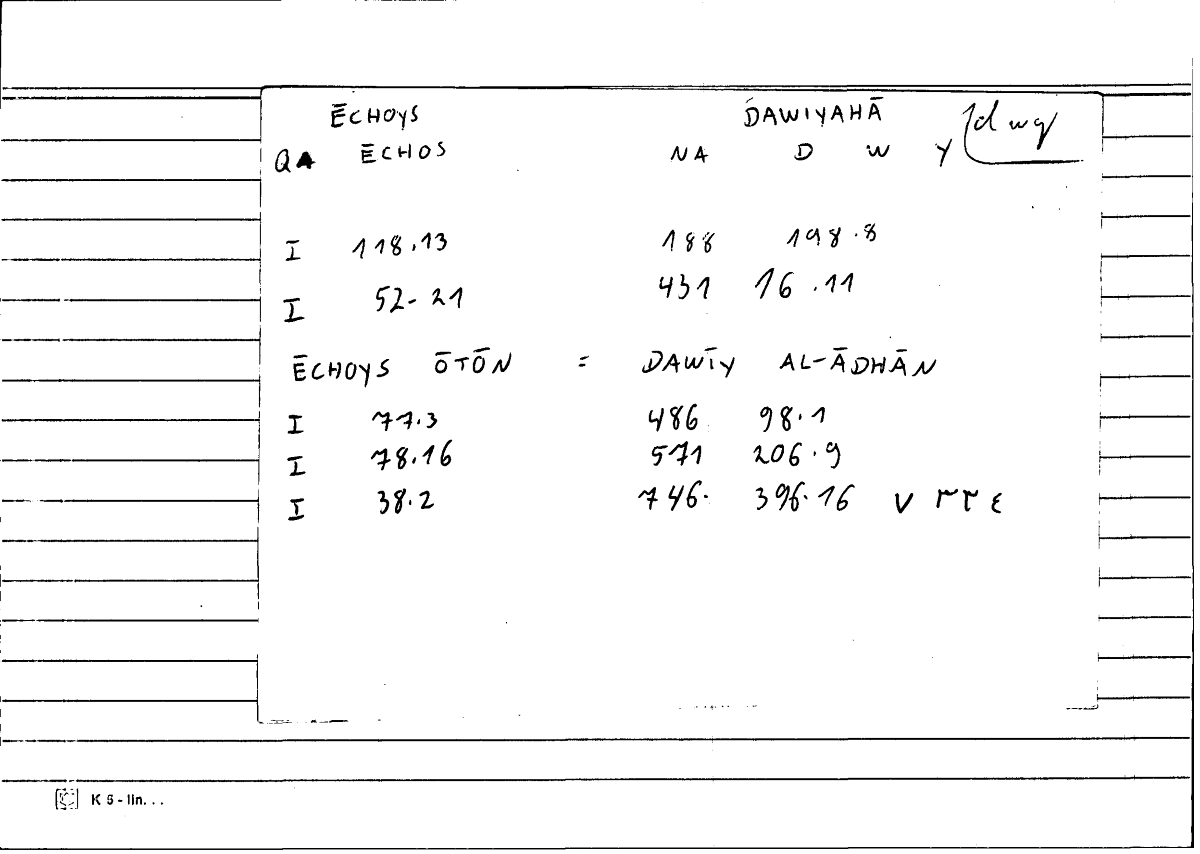 ĒCHOYS ḊAWIYAHĀ
QA ĒCHOS NA D W Y dwy
I 118.13 188 198.8
I 52-21 431 16.11
ĒCHOYS ŌTŌN = DAWĪY AL-ĀDHĀN
I 77.3 486 98.1
I 78.16 571 206.9
I 38.2 746. 396.16 ٧ ٣٢٤
K 5 - lin...